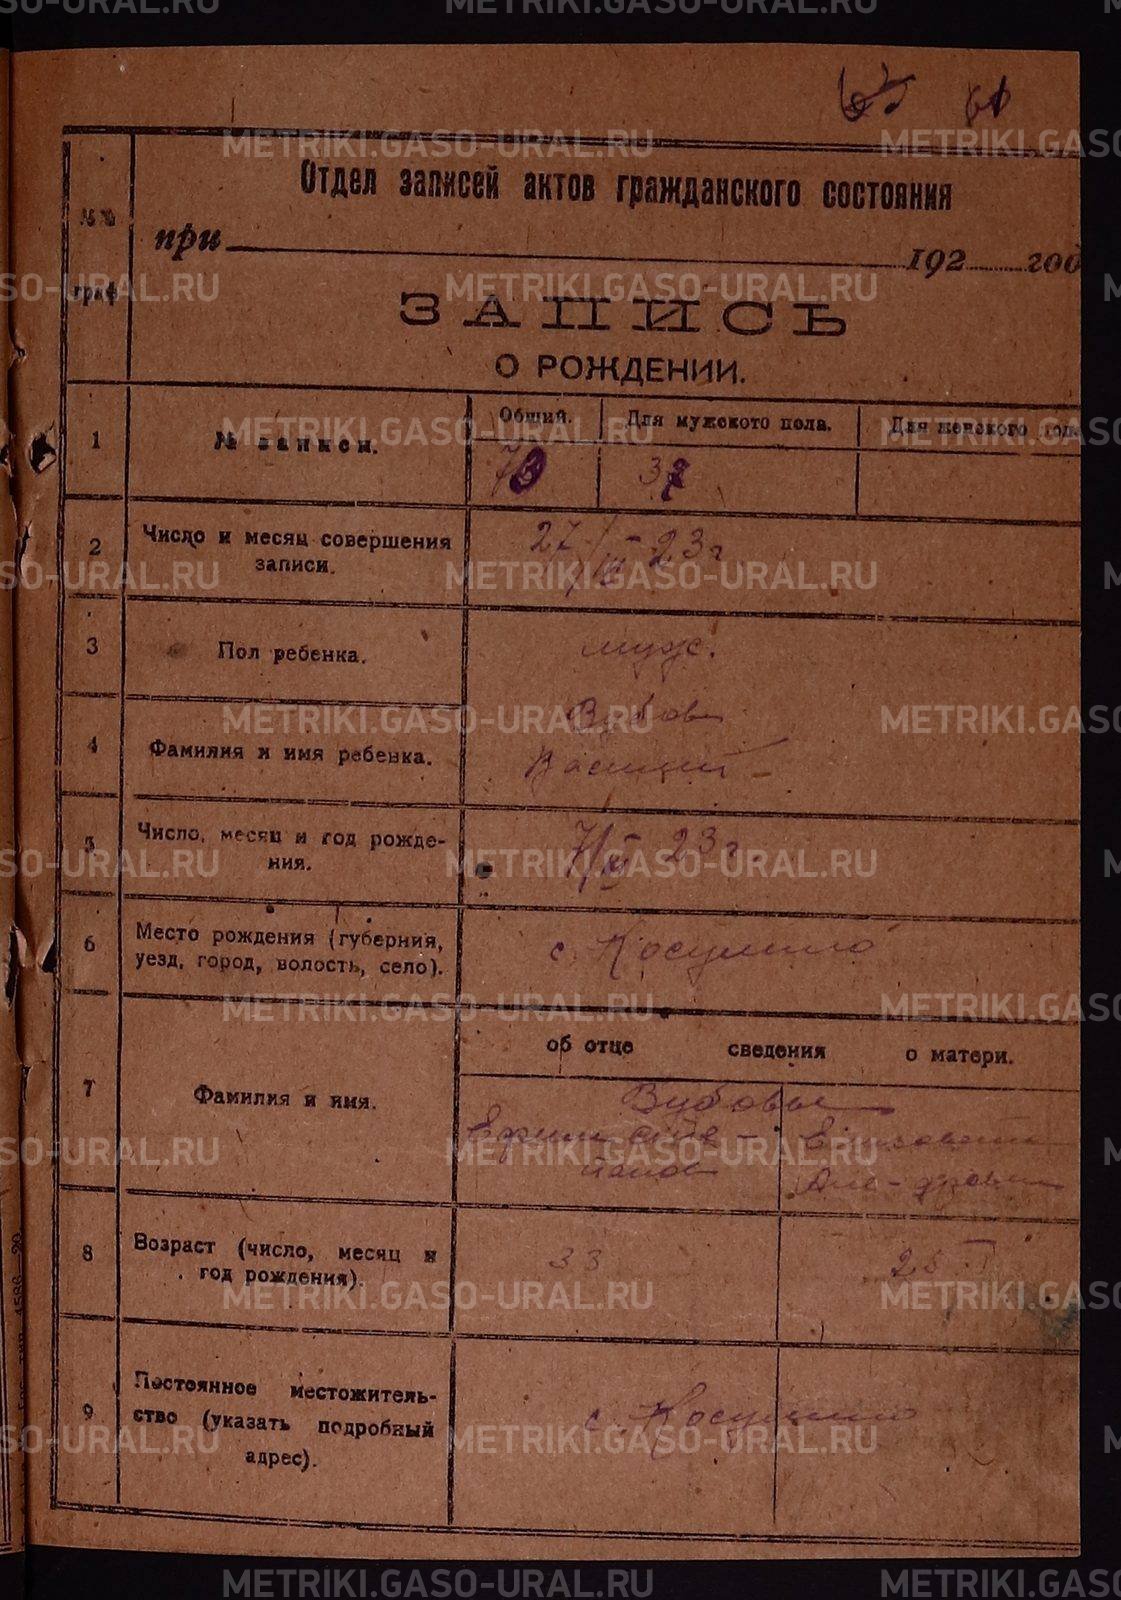 65 61
№№ граф
Отдел записей актов гражданского состояния
при 192 год
ЗАПИСЬ
О РОЖДЕНИИ.
1
№ записи.
Общий.
Для мужского пола.
Для женского пола
73
37
2
Число и месяц совершения
записи.
27/IV 23 г
3
Пол ребенка.
муж.
4
Фамилия и имя ребенка.
Зубов
Василий
5
Число, месяц и год рожде-
ния.
7/IV 23 г
6
Место рождения (губерния,
уезд, город, волость, село).
с. Косулино
7
Фамилия и имя.
об отце сведения о матери.
Зубовы
Ефим
Елизавета
8
Возраст (число, месяц и
год рождения).
33
25
9
Постоянное местожитель-
ство (указать подробный
адрес).
с. Косулино
METRIKI.GASO-URAL.RU